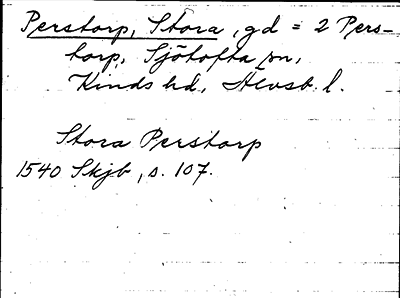 Perstorp, Stora, gd = 2 Pers-
torp, Sjötofta sn,
Kinds hd, Älvsb. l.
Stora Perstorp
1540 Skjb, s. 107.